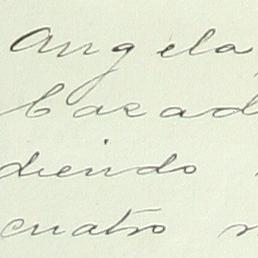 Angela,
Casad
diendo
cuatro